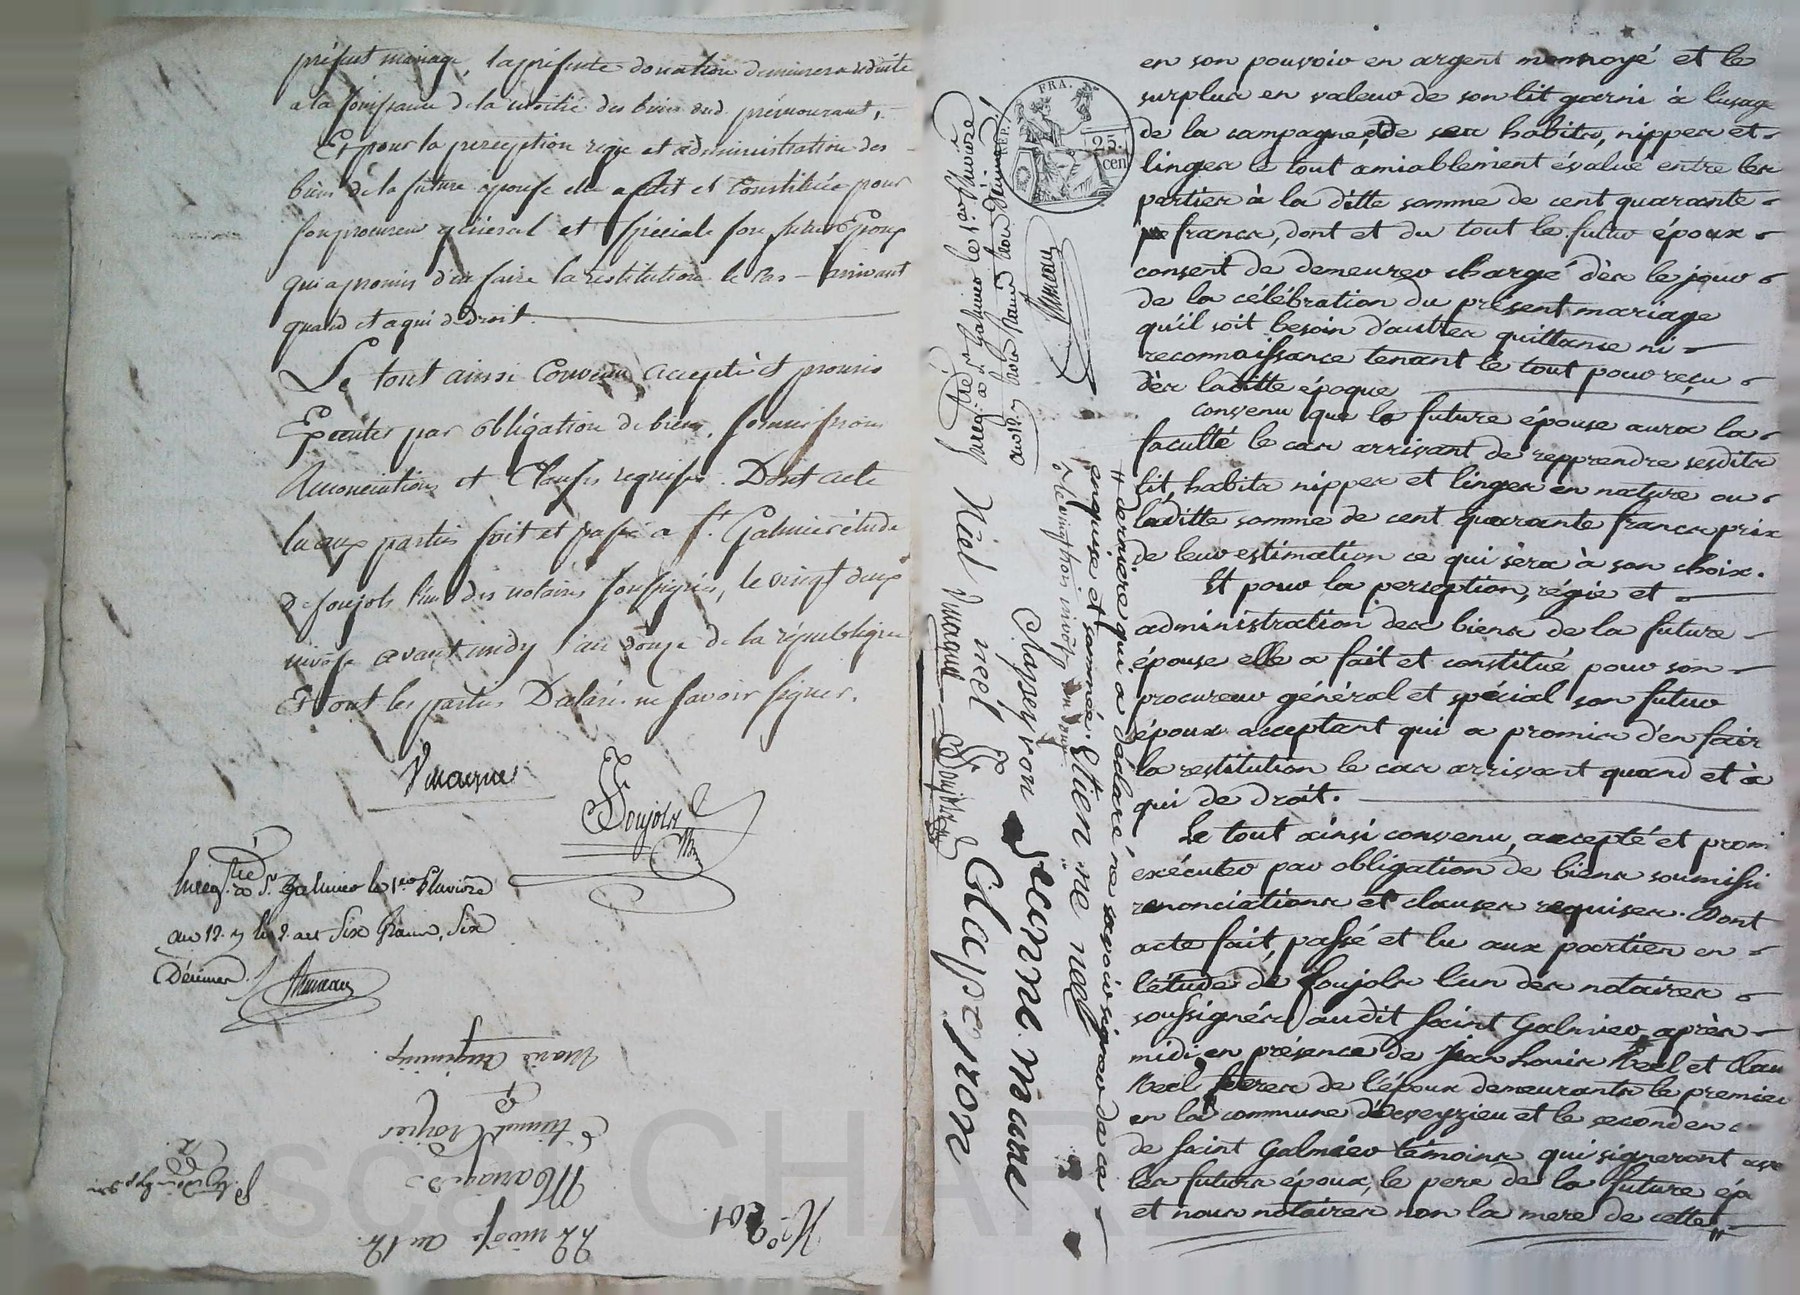 présent mariage, la présente donation demeurera réduite
a la jouissance de la moitié des biens dud. prémourant,
Et pour la perception regie et administration des
biens de la future épouse elle a fait et Constituée pour
son procureur général et spéciale son futur Epoux
qui a promis d'en faire la restitution le Cas arrivant
quand et a qui de droit
Le tout ainsi Convenu accepté et promis
Executer par obligation de biens, soumissions
Renonciations et Clauses requises. Dont acte
lu aux parties fait et passé a St. Galmier étude
de Soujols l'un des notaires soussignés, le vingt deux
nivose avant midy l'an douze de la république
Et ont les parties Déclaré ne savoir signer.
Soujols
Enreg.tré à St Galmier le 1er Pluviose
an 12.
Décimes
No 201.
22 nivose an 12.
Mariage
Etienne
&
Marie
FRA.
REP.
25
cen
en son pouvoir en argent monnoyé et le
surplus en valeur de son lit garni à l'usage
de la campagne, et de ses habits, nippes et
linges le tout amiablement évalué entre les
parties à la ditte somme de cent quarante
francs, dont et du tout le futur époux
consent de demeurer chargé dès le jour
de la célébration du présent mariage
qu'il soit besoin d'autres quittance ni
reconnoissance tenant le tout pour reçu
dès laditte époque
Convenu que la future épouse aura la
faculté le cas arrivant de repprendre sesdits
lit, habits nippes et linges en nature ou
laditte somme de cent quarante francs prix
de leur estimation ce qui sera à son choix.
Et pour la perception, régie et
administration des biens de la future
épouse elle a fait et constitué pour son
procureur général et spécial son futur
époux acceptant qui a promis d'en fair
la restitution le cas arrivant quand et à
qui de droit.
Le tout ainsi convenu, accepté et prom
exécuter par obligation de biens soumissi
renonciations et clauses requises. Dont
acte fait, passé et lu aux parties en
l'étude de Soujols l'un des notaires
soussignés audit Saint Galmier, après
midi, en présence de Jean Louis Neel et Clau
Neel freres de l'époux demeurants le premier
en la commune d'Eveyzieu et le second en c
de Saint Galmier témoins qui signeront ave
les futurs époux, le pere de la future ép
et nous notaires non la mere de cette
derniere qui a déclaré ne savoir signer de ce
enquise et sommée. Etienne neel
Clapeyron
neel
Clapeyron
Soujols